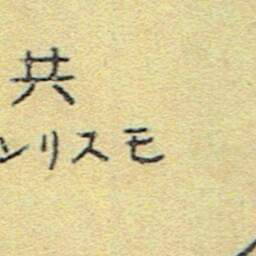 共
ンリスモ